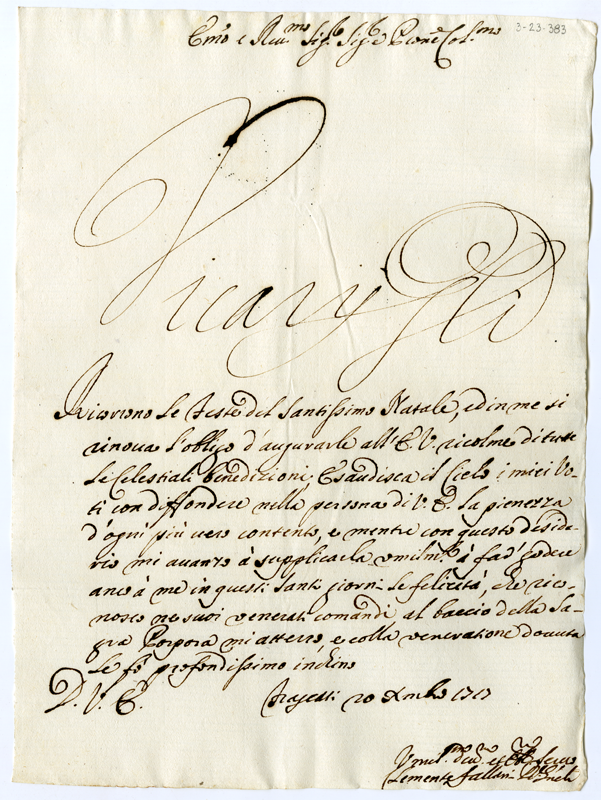 3-23-383
Em̃o e Reu.mo Sig.r Sig.r e Prone Col.mo
Vicarij Gli
Ricorrono le Feste del Santissimo Natale, ed in me si
rinoua l'obligo d'augurarle all'E.V. ricolme di tutte
le Celestiali benedizioni, Esaudisca il Cielo i miei Vo-
ti con diffondere nella persona di V.E. la pienezza
d'ogni più uero contento, e mentre con questo deside-
rio mi auanzo à supplicarla umilm.te à far godere
anco à me in questi santi giorni le felicità, che rico-
nosco ne suoi venerati comandi, al baccio della Sa-
gra Porpora mi atterro, e colla veneratione douuta
le fò profondissimo inchino
D.V.E. Frascati 20 Xmbre 1717
Vmil.mo deu.mo et Seruo
Clemente